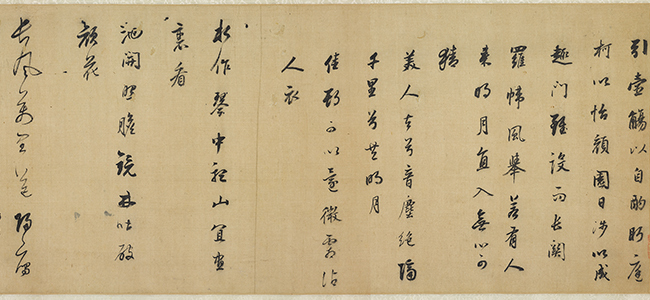 引壺觴以自酌眄庭
柯以怡顏園日涉以成
趣門雖設而長關
羅幃風舉若有人
來明月直入無心可
猜
美人去兮音塵絕隔
千里兮共明月
佳期可以還微霜沾
人衣
水作琴中聽山宜畫
裏看
池開照膽鏡林吐破
顏花
長風萬里送